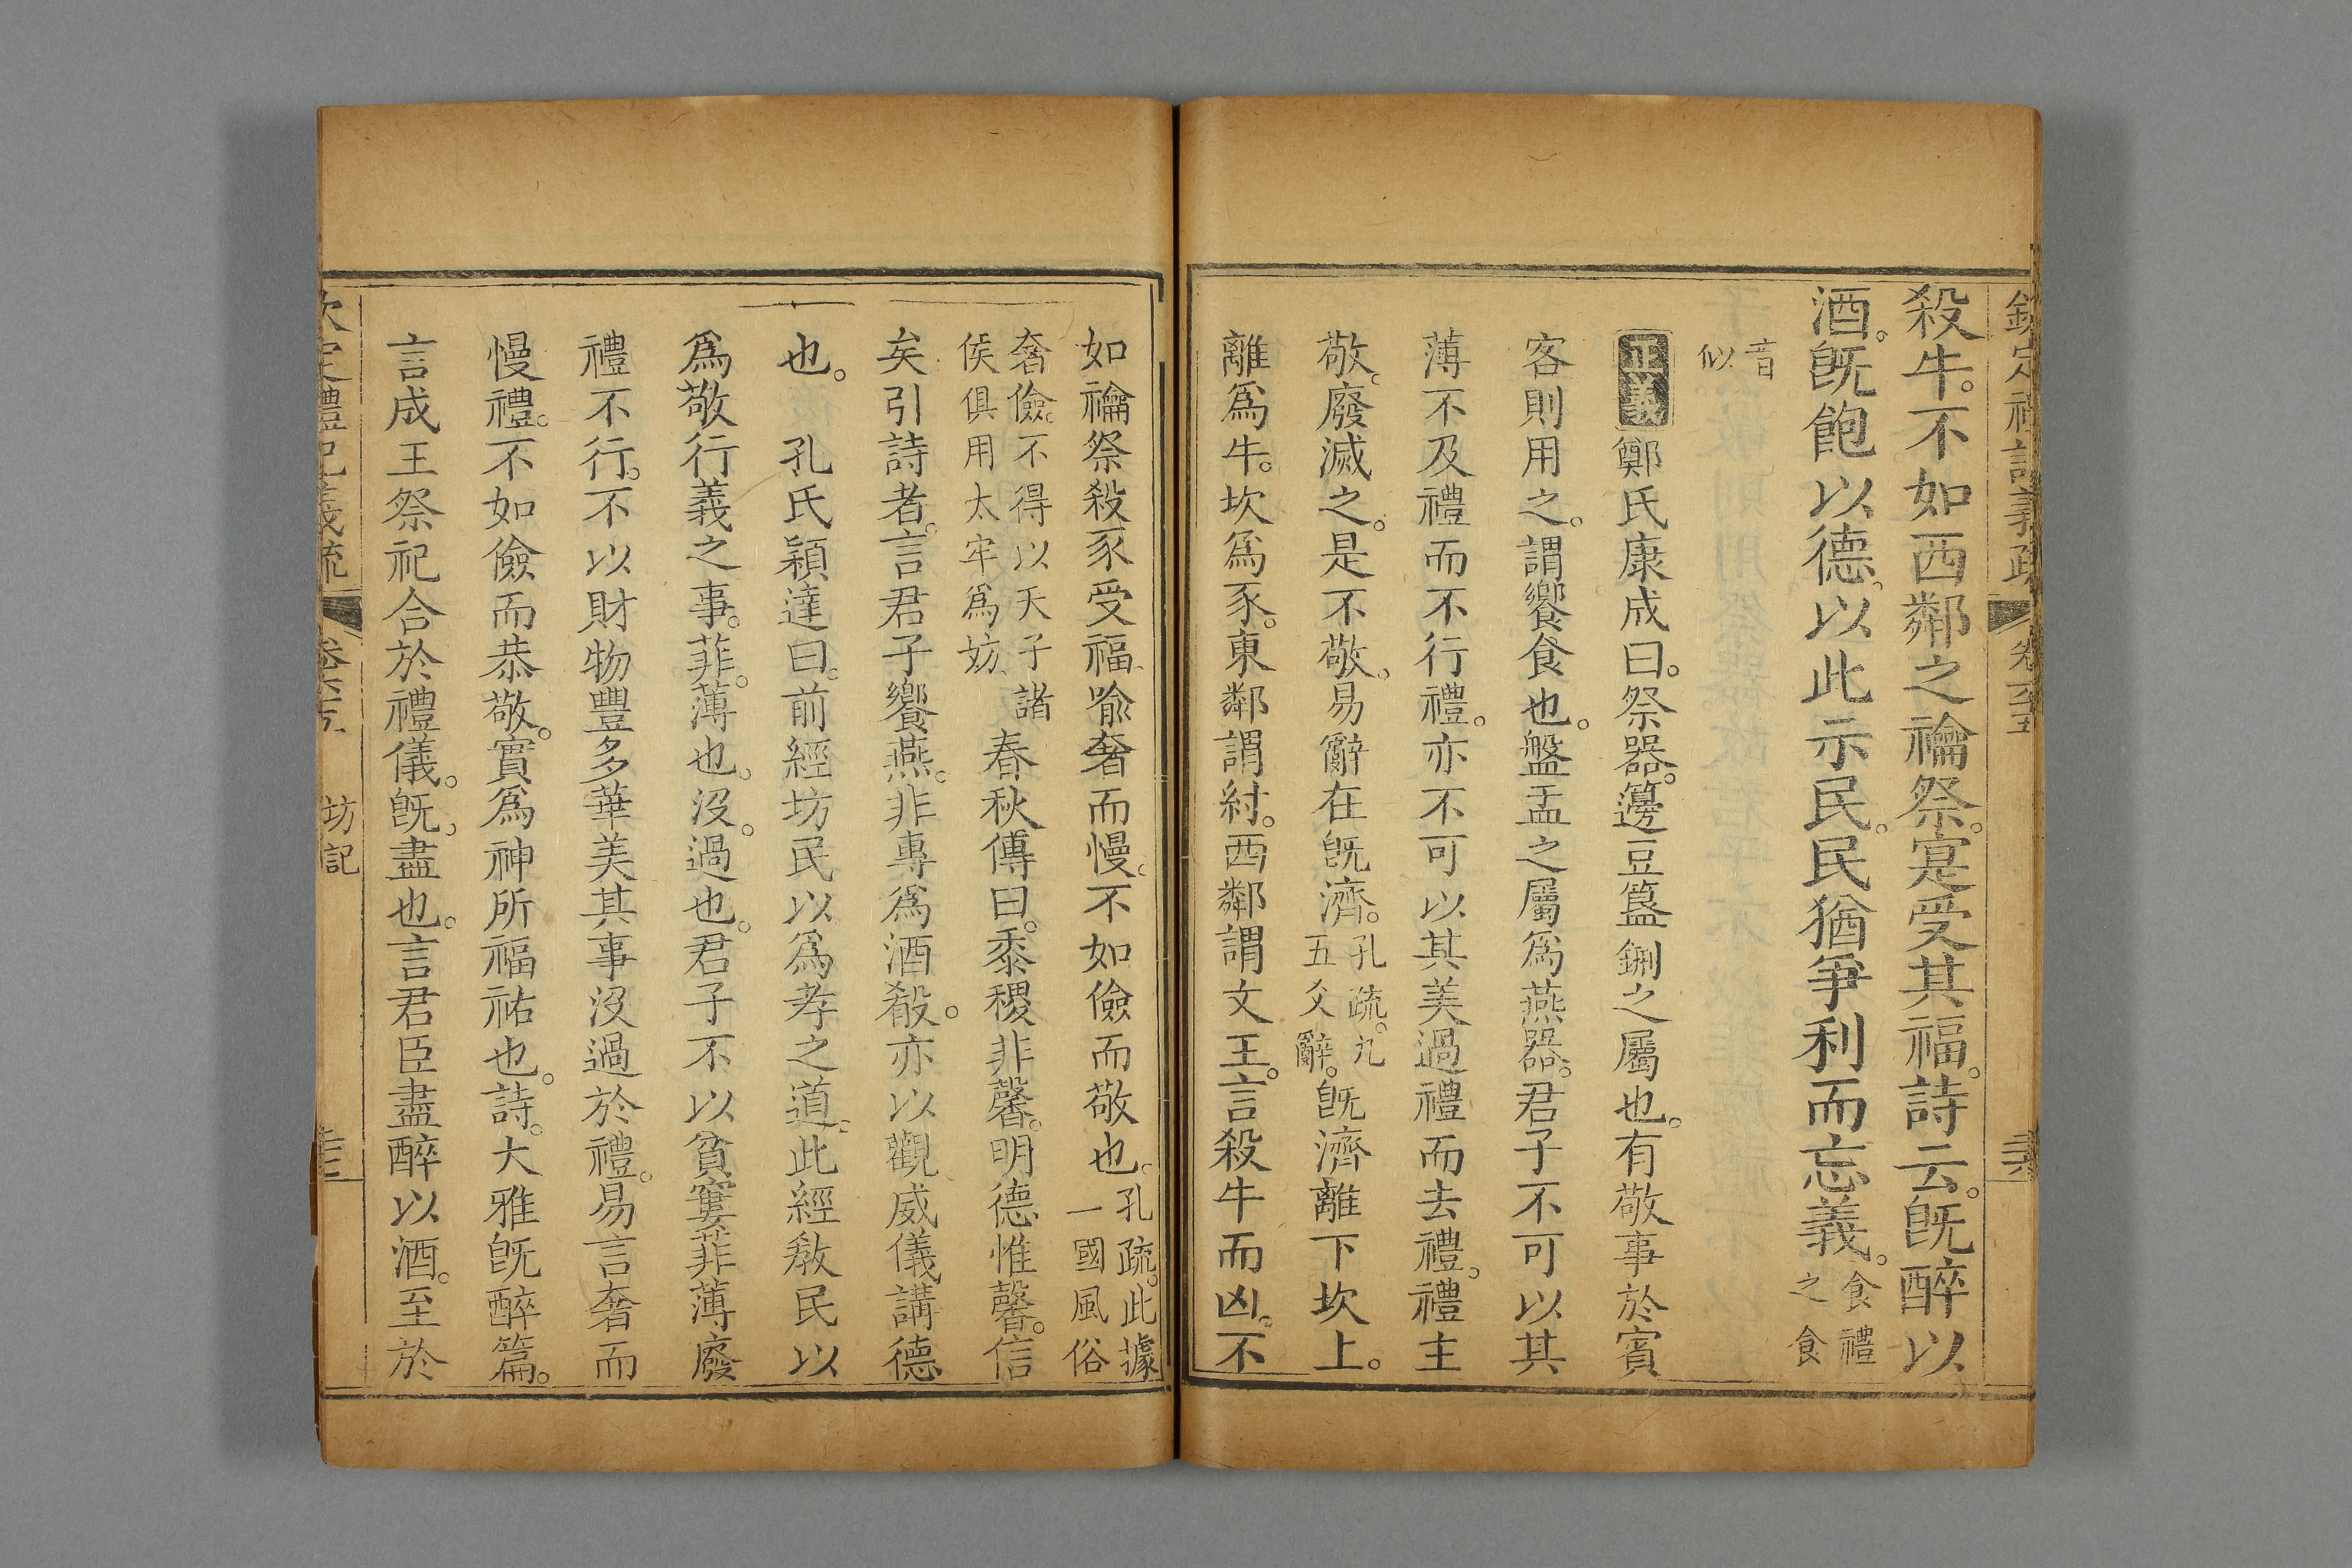 欽定禮記義疏 卷六十五
殺牛。不如西鄰之禴祭。寔受其福。詩云。旣醉以
酒。旣飽以德。以此示民。民猶爭利而忘義。食禮之食
音似
正義鄭氏康成曰。祭器。籩豆簋鉶之屬也。有敬事於賓
客則用之。謂饗食也。盤盂之屬爲燕器。君子不可以其
薄不及禮而不行禮。亦不可以其美過禮而去禮。禮主
敬。廢滅之。是不敬。易辭在旣濟。孔疏。九五爻辭。旣濟離下坎上。
離爲牛。坎爲豕。東鄰謂紂。西鄰謂文王。言殺牛而凶。不
如禴祭殺豕受福。喻奢而慢。不如儉而敬也。孔疏。此據一國風俗
奢儉。不得以天子諸侯俱用太牢爲妨。春秋傳曰。黍稷非馨。明德惟馨。信
矣引詩者。言君子饗燕。非專爲酒殽。亦以觀威儀講德
也。 孔氏穎達曰。前經坊民以爲孝之道。此經教民以
爲敬行義之事。菲。薄也。沒。過也。君子不以貧窶菲薄廢
禮不行。不以財物豐多華美其事沒過於禮。易言奢而
慢禮。不如儉而恭敬。實爲神所福祐也。詩。大雅旣醉篇。
言成王祭祀合於禮儀。旣。盡也。言君臣盡醉以酒。至於
欽定禮記義疏 卷六十五 坊記